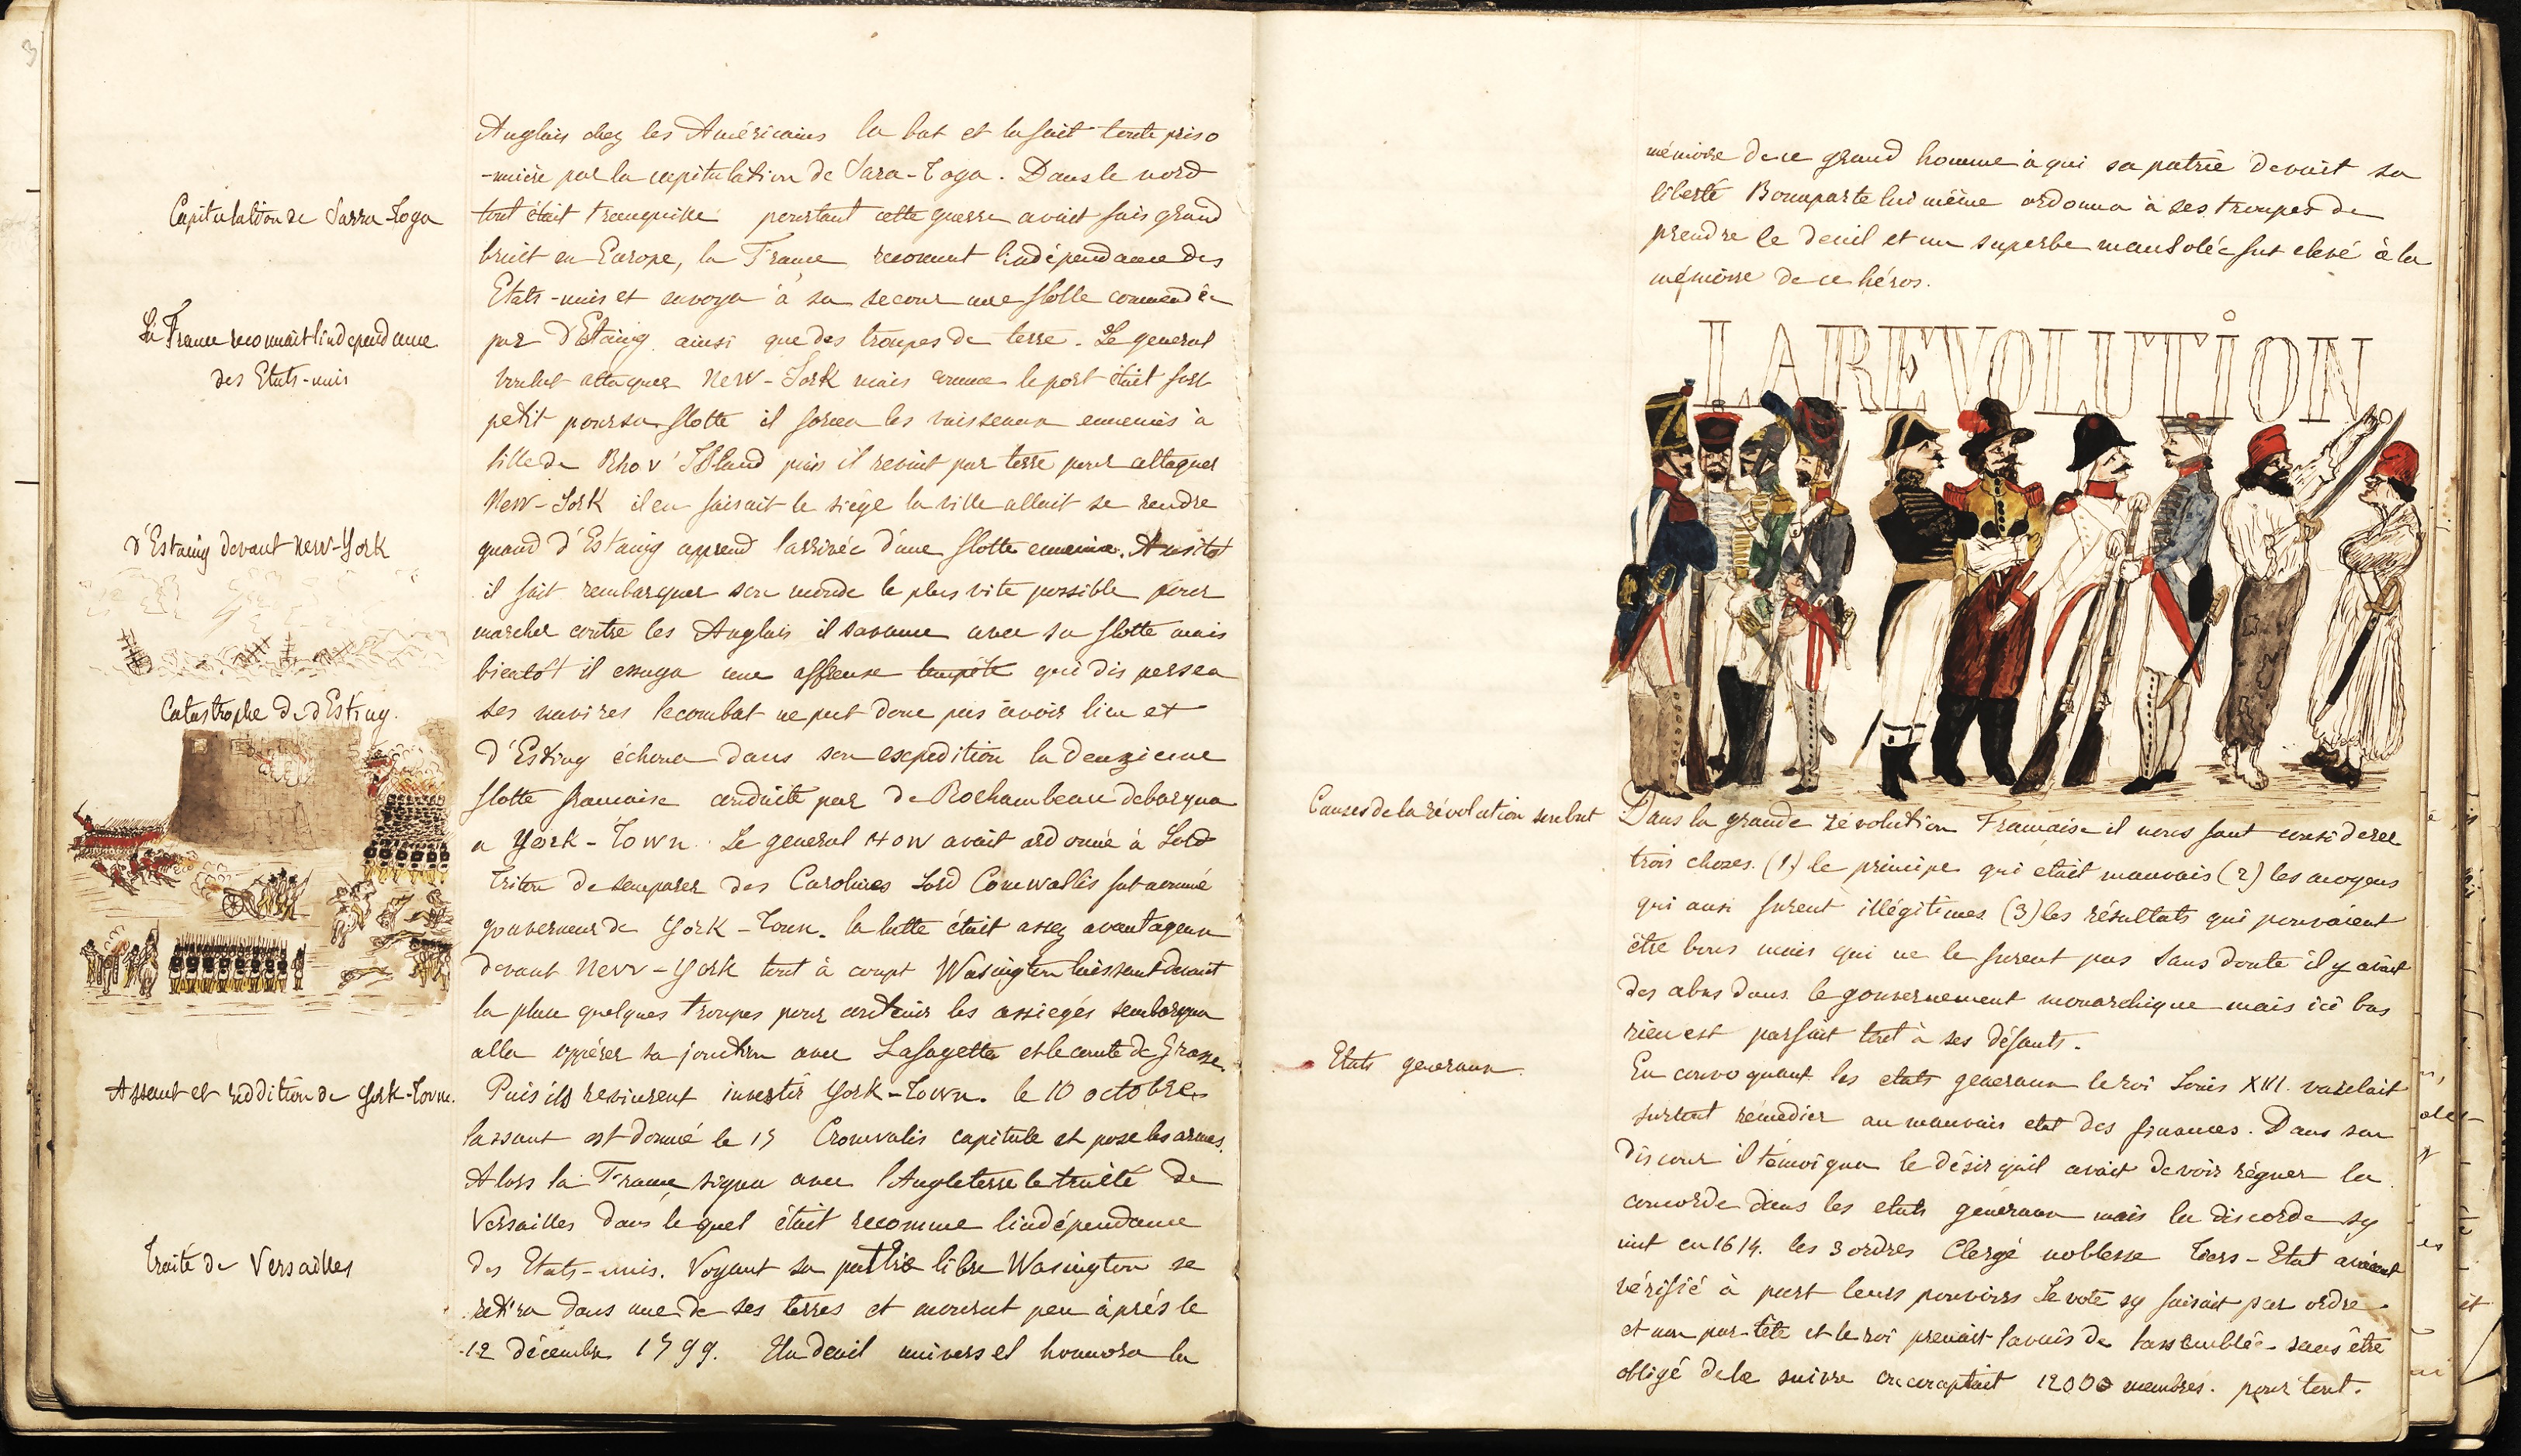 3
Anglais chez les Américains la bat et la fait toute priso
-nnière par la capitulation de Sara-Toga. Dans le nord
Capitulation de Sarra Toga
tout était tranquille pourtant cette guerre avait fais grand
bruit en Europe, la France reconnut lindépendance des
Etats-unis et envoya à sa secour une flotte commendée
La France reconnait lindependance
des Etats-unis
par d'Estaing ainsi que des troupes de terre. Le general
voulut attaquer New-York mais comme le port était fort
petit pour sa flotte il força les vaisseaux ennemies à
lille de Rho v' Island puis il revint par terre pour attaquer
New-York il en faisait le siège la ville allait se rendre
d'Estaing devant New-York
quand d'Estaing apprend larrivée d'une flotte ennemie. Ausitot
il fait rembarquer son monde le plus vite possible pour
marcher contre les Anglais il savance avec sa flotte mais
bientôt il essuya une affreuse tempête qui dis persea
Catastrophe de d'Esting.
ses navires le combat ne put donc pas avoir lieu et
d'Esting échoua dans son expedition la deuzieme
flotte francaise conduite par de Rochambeau debarqua
a York-Town. Le general How avait ordonné à Lord
Triton de semparer des Carolines Lord Cornwallis fut nommé
gouverneur de York-Town. la lutte était assez avantageux
devant New-York tout à coupt Wasington laissant devant
la place quelques troupes pour contenir les assiegés sembarqua
alla oppérer sa jonction avec Lafayette et le comte de Grasse.
Assaut et reddition de York-Town.
Puis ils revinrent investir York-Town. le 10 octobre
lassaut est donné le 17 Cronwalis capitule et pose les armes.
Alors la France signa avec l'Angleterre le traité de
Versailles dans le quel était reconnue lindépendance
Traité de Versailles
des Etats-unis. Voyant sa patrie libre Wasington se
retira dans une de ses terres et mourut peu après le
12 décembre 1799. Un deuil universel honnora la
mémoire de ce grand homme à qui sa patrie devait sa
liberté Bonnaparte lui même ordonna à ses troupes de
prendre le deuil et un superbe mausolée fut elevé à la
mémoire de ce héros.
LA REVOLUTION
Causes de la révolution son but
Dans la grande révolution Francaise il nous faut considerer
trois choses. (1) le principe qui était mauvais (2) les moyens
qui ausi furent illégitimes (3) les résultats qui pouvaient
être bons mais qui ne le furent pas sans doute il y avait
des abus dans le gouvernement monarchique mais ici bas
rien est parfait tout à ses défauts.
Etats generaux
En convoquant les etats generaux le roi Louis XVI voulait
surtout remedier au mauvais etat des finances. Dans son
discour il témoigna le désir quil avait de voir régner la
concorde dans les etats generaux mais la discorde sy
mit en 1614. les 3 ordres Clergé noblesse Tiers-Etat avaient
vérifié à part leurs pouvoirs Le vote sy faisait par ordre
et non par tête et le roi prenait lavais de lassemblée sans être
obligé de le suivre on comptait 12000 membres. pour tout.